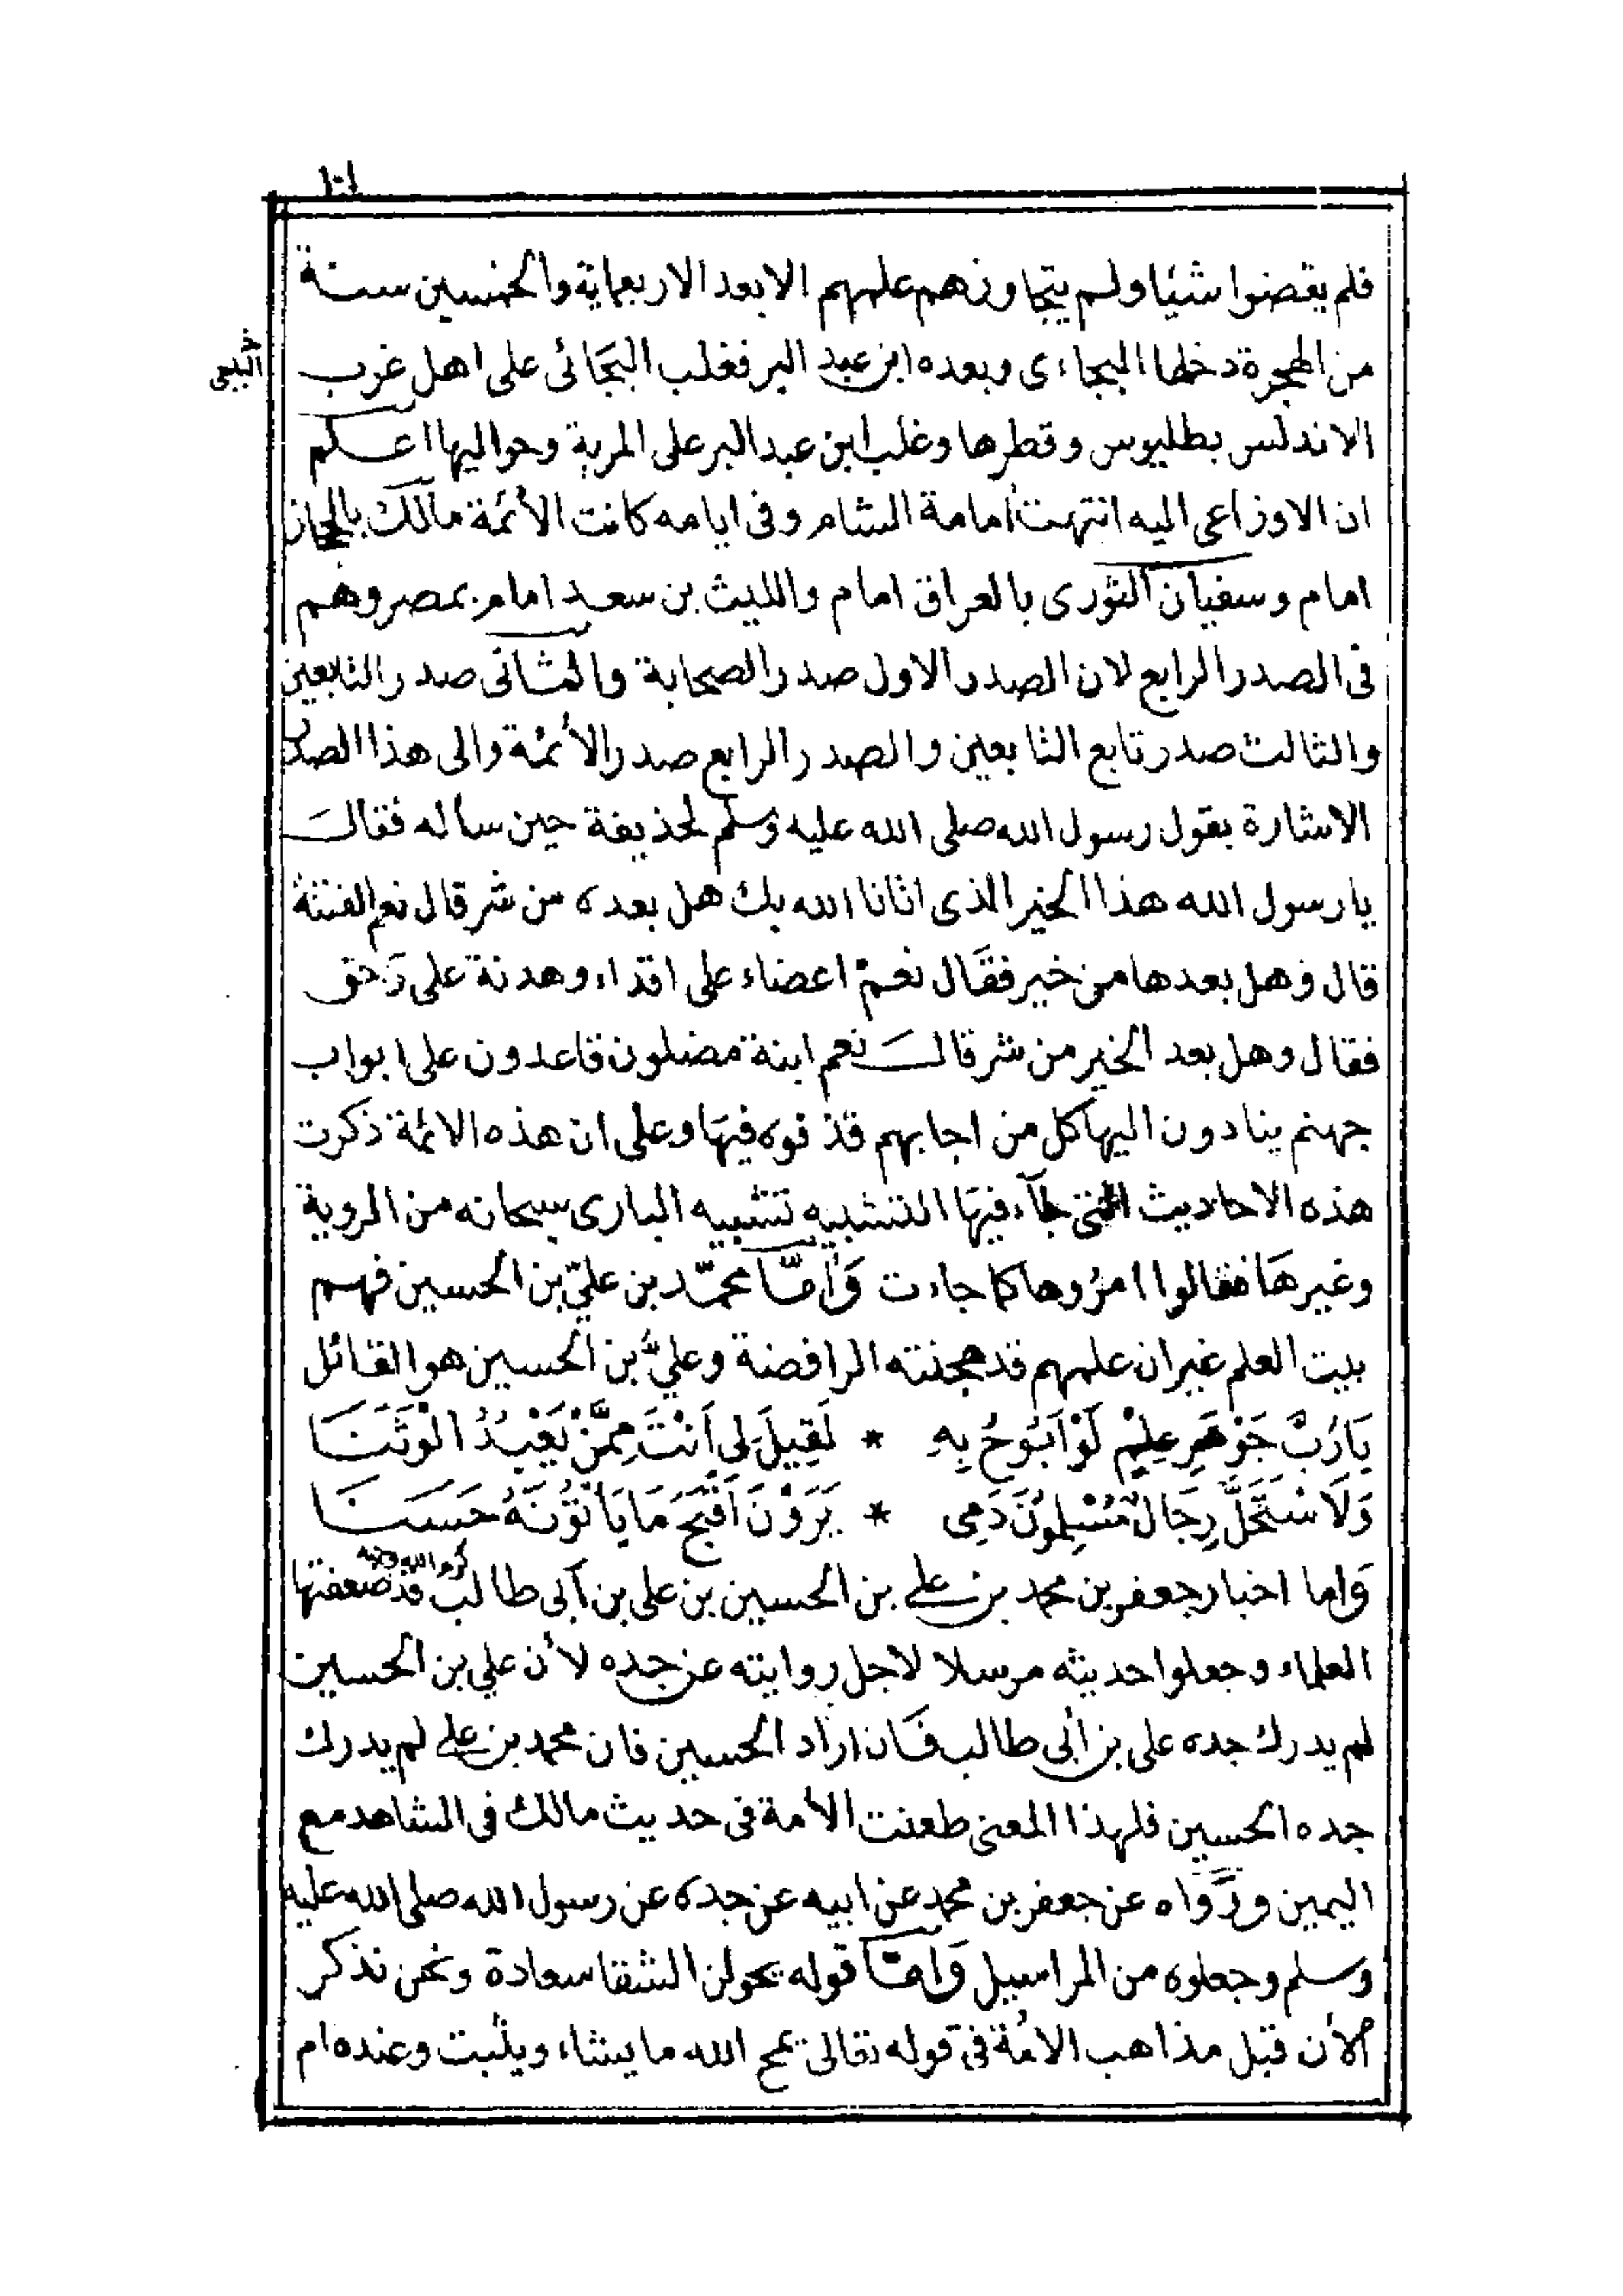 ١٠١
فلم يقضوا شئيا ولم يتجاوزهم علمهم الا بعد الاربعماية والخمسين سنة
من الهجرة دخلها البجاءى وبعده ابن عبد البر فغلب البَجَائى على اهل غرب
الاندلس بطليوس وقطرها وغلب ابن عبد البر على المرية وحواليها اعلم
ان الاوزاعى اليه انتهت امامة الشام وفى ايامه كانت الأئمة مالك بالحجاز
امام وسفيان الثورى بالعراق امام والليث بن سعد امام بمصر وهم
فى الصدر الرابع لان الصدر الاول صدر الصحابة والثانى صدر التابعين
والثالث صدر تابع التابعين والصدر الرابع صدر الأئمة والى هذا الصدر
الاشارة بقول رسول الله صلى الله عليه وسلم لحذيفة حين ساله فقال
يارسول الله هذا الخير الذى اتانا الله بك هل بعده من شر قال نعم الفتنة
قال وهل بعدها من خير فقال نعم اعضاء على اقذاء وهدنة على دخن
فقال وهل بعد الخير من شر قال نعم ايئة مضلون قاعدون على ابواب
جهنم ينادون اليها كل من اجابهم قذفوه فيها وعلى ان هذه الائمة ذكرت
هذه الاحاديث التى جآء فيها التشبيه تشبيه البارى سبحانه من الروية
وغيرها فقالوا امرُوها كما جاءت وَأمَّا محمّد بن عليّ بن الحسين فهم
بيت العلم غير ان علمهم قد هجنته الرافضة وعليّ بن الحسين هو القائل
يَارُبَّ جَوْهَرِ عِلْمٍ لَوْ اَبُوحُ بِهِ * لَقِيلَ لِى اَنْتَ مِمَّنْ يَعْبُدُ الْوَثَنَا
وَلَاسْتَحَلَّ رِجَالٌ مُسْلِمُونَ دَمِى * يَرَوْنَ اَقْبَحَ مَا يَأْتُونَهُ حَسَنَا
وَاما اخبار جعفر بن محمد بن على بن الحسين بن على بن أبى طالب كرم الله وجهه قد ضعفتها
العلماء وجعلوا حديثه مرسلا لاجل روايته عن جده لأن علي بن الحسين
لم يدرك جده على بن أبى طالب فَان اراد الحسين فان محمد بن على لم يدرك
جده الحسين فلهذا المعنى طعنت الأمة فى حديث مالك فى الشاهد مع
اليمين ورَواه عن جعفر بن محمد عن ابيه عن جده عن رسول الله صلى الله عليه
وسلم وجعلوه من المراسيل وَامَّا قوله يحولن الشقا سعادة ونحن نذكر
الأن قبل مذاهب الأمة فى قوله تعالى يمح الله ما يشاء ويثبت وعنده ام